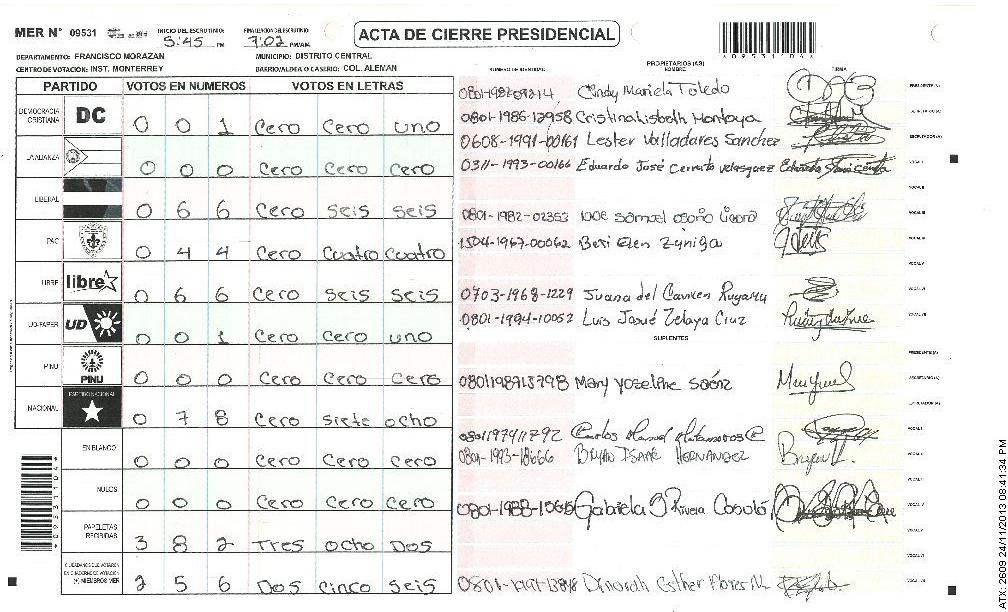 MER N° 09531 INICIO DEL ESCRUTINIO: 5:45 PM FINALIZACION DEL ESCRUTINIO: 7:02 PM/AM
ACTA DE CIERRE PRESIDENCIAL
*09531104*
DEPARTAMENTO: FRANCISCO MORAZAN MUNICIPIO: DISTRITO CENTRAL
CENTRO DE VOTACION: INST. MONTERREY BARRIO/ALDEA O CASERIO: COL. ALEMAN
PARTIDO VOTOS EN NUMEROS VOTOS EN LETRAS
DEMOCRACIA CRISTIANA DC 0 0 1 Cero Cero uno
LA ALIANZA 0 0 0 Cero Cero Cero
LIBERAL 0 6 6 Cero seis seis
PAC 0 4 4 Cero Cuatro Cuatro
LIBRE libre 0 6 6 Cero seis seis
UD-FAPER UD 0 0 1 Cero Cero uno
PINU PINU 0 0 0 Cero Cero Cero
NACIONAL PARTIDO NACIONAL 0 7 8 Cero siete ocho
EN BLANCO 0 0 0 Cero Cero Cero
NULOS 0 0 0 Cero Cero Cero
PAPELETAS RECIBIDAS 3 8 2 Tres ocho Dos
CIUDADANOS QUE VOTARON EN CUADERNO DE VOTACION (+) MIEMBROS MER 2 5 6 Dos cinco seis
PROPIETARIOS (AS)
NUMERO DE IDENTIDAD NOMBRE FIRMA
Cindy Mariela Toledo PRESIDENTE (A)
0801-1986-12958 Cristina Lisbeth Montoya SECRETARIO (A)
0608-1991-00161 Lester Valladares Sanchez ESCRUTADOR (A)
0311-1993-00166 Eduardo José Cerrato Velasquez VOCAL I
VOCAL II
0801-1982-02353 VOCAL III
1504-1967-00062 Zuniga
0703-1968-1229 Juana del Carmen
0801-1994-10052 Luis Josué Zelaya Cruz
SUPLENTES
PRESIDENTE (A)
0801198713798 Mary Yoseline Saénz SECRETARIO (A)
ESCRUTADOR (A)
0801197411792 Carlos Manuel Matamoros C VOCAL I
BRYAN ISAAC HERNANDEZ
Gabriela Rivera
Esther Flores M.
ATX-2609 24/11/2013 08:41:34 PM